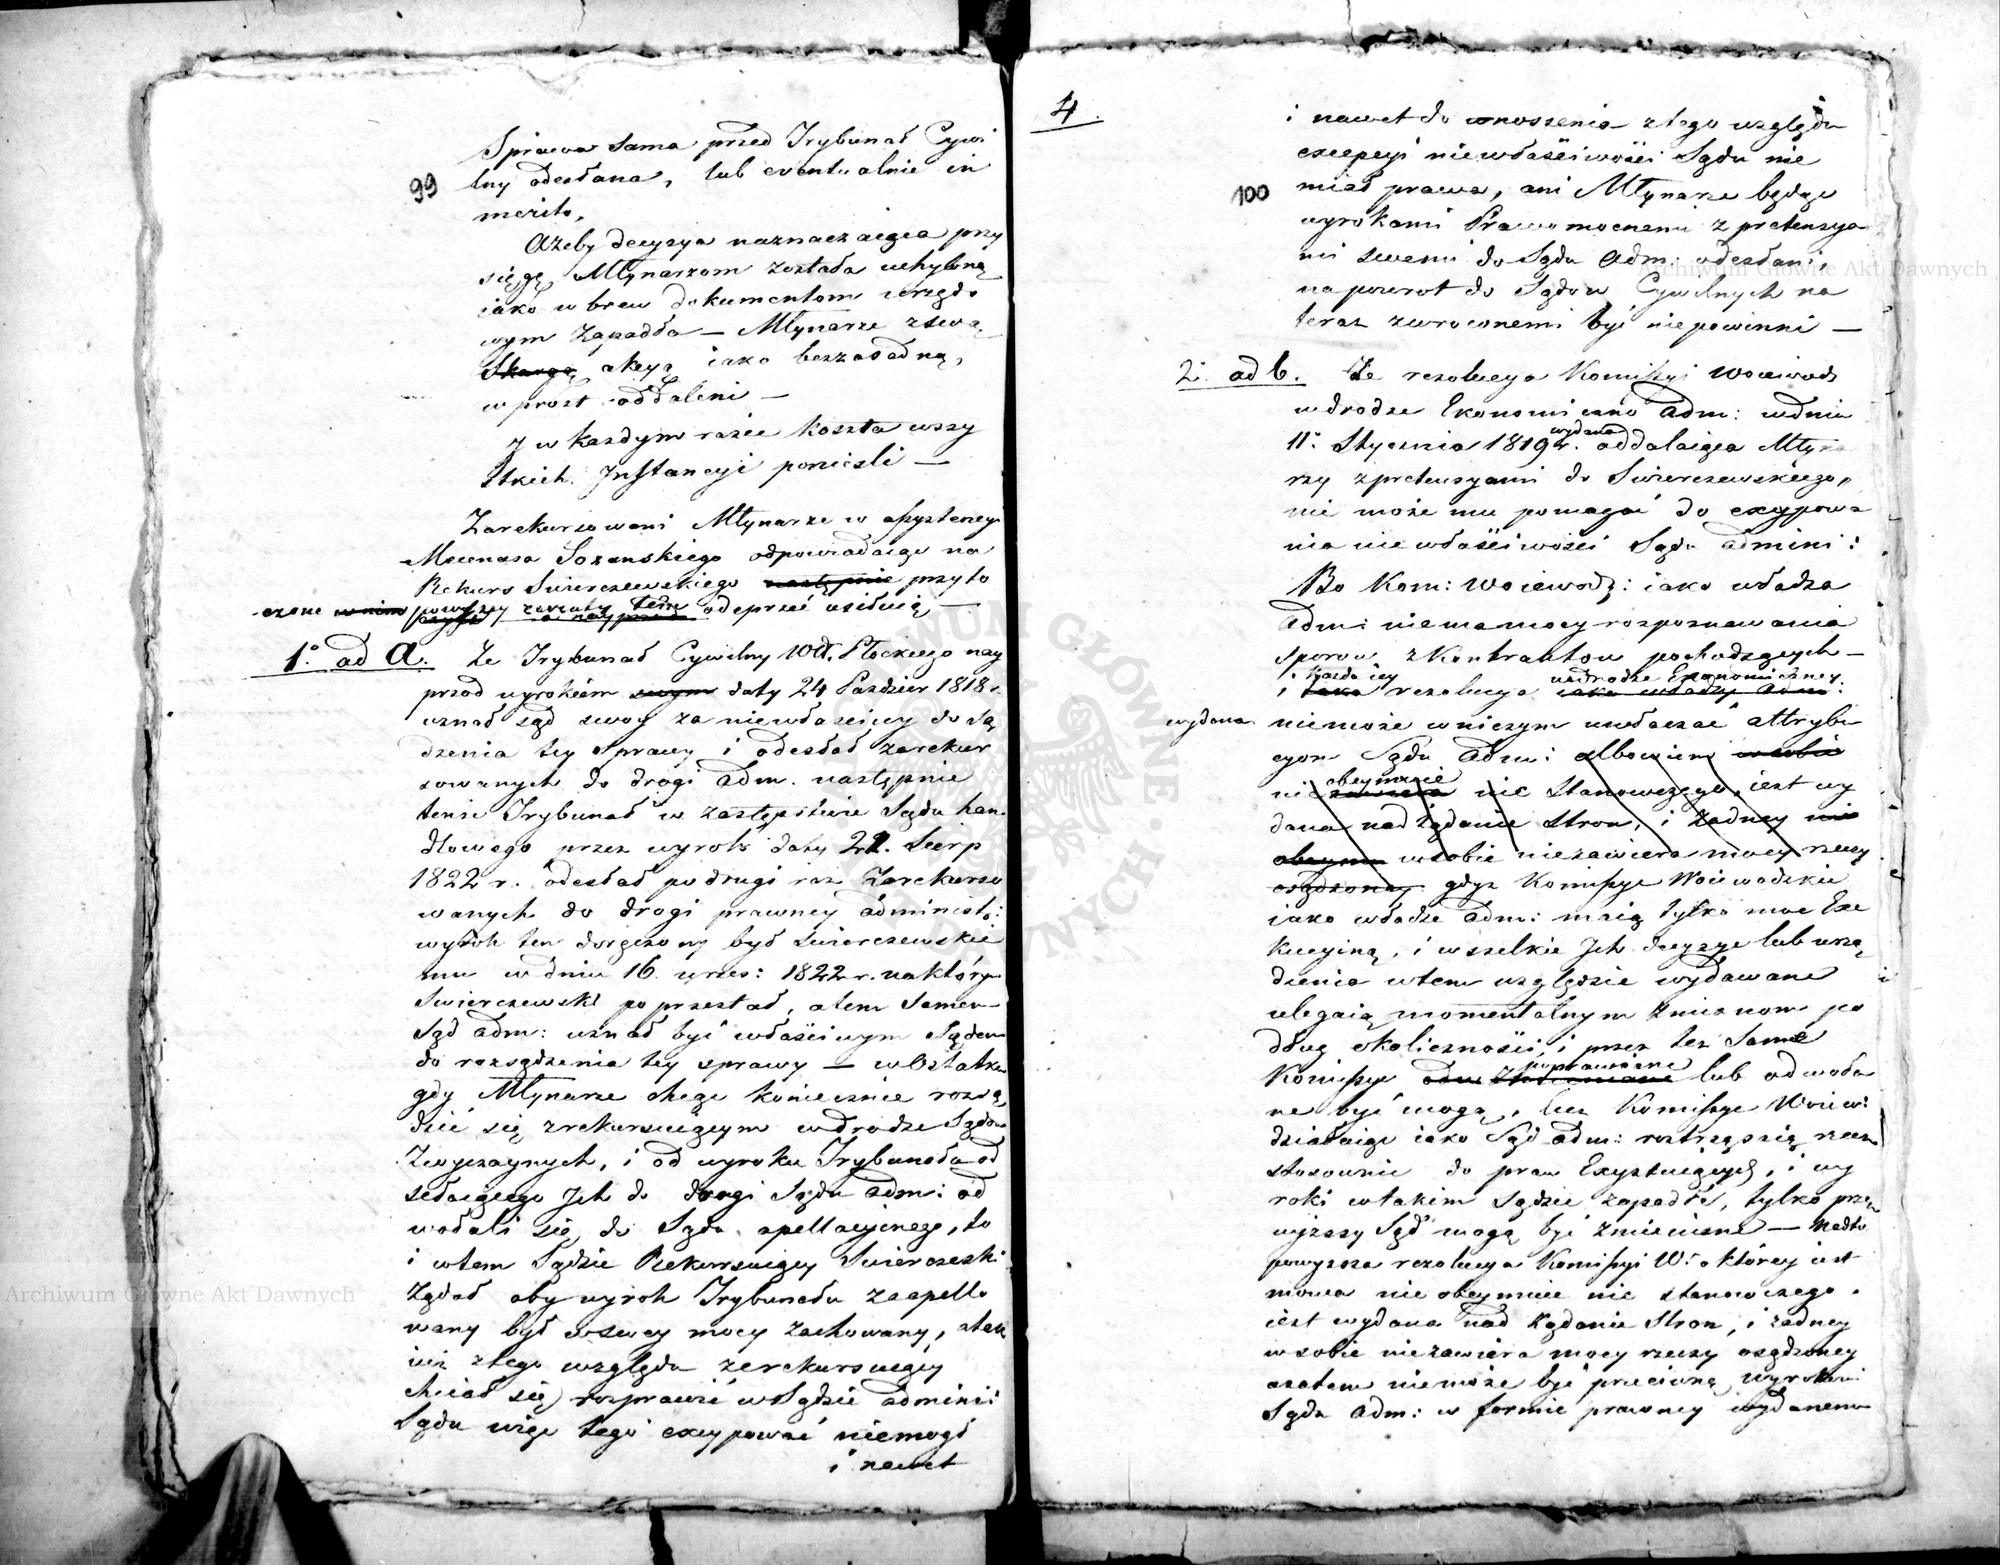 99
Sprawa sama przed Trybunał Cywi
lny odesłana, lub eventualnie in
merito,
Ażeby decyzya naznaczaiąca przy
sięgę Młynarzom została uchyloną
iako wbrew dokumentom urzędo
wym zapadła — Młynarze zswą
Skargą akcyą iako bezzasadną,
wprost oddaleni —
y w każdym razie koszta wszy
stkich Instancyi ponieśli —
Zarekursowani Młynarze w assystencyi
Mecenasa Sozanskiego odpowiadaiąc na
Rekurs Swierczewskiego następnie przyto
czone w nim powyższy zarzuty temi odeprzeć usiłuią —
1° ad a. Ze Trybunał Cywilny Wd. Płockiego nay
przod wyrokiem swym daty 24 Paździer 1818 r.
uznał sąd swoy za niewłaściwy do są
dzenia tey sprawy i odesłał zarekur
sowanych do drogi adm. następnie
tenże Trybunał w zastępstwie Sądu han
dlowego przez wyrok daty 22. Sierp
1822 r. odesłał po drugi raz Zarekurso
wanych do drogi prawney administ:
wyrok ten doręczony był Swierczewskie
mu w dniu 16 wrześ: 1822 r. na którym
Swierczewski poprzestał, a tem samem
Sąd adm: uznał być właściwym Sądem
do rozsądzenia tey sprawy — w Ostatku
gdy Młynarze chcąc koniecznie rozsą
dzić się z rekursuiącym w drodze Sądow
Zwyczaynych, i od wyroku Trybunału od
sełaiącego Ich do drogi Sądu adm: od
wołali się do Sądu apellacyinego, to
i wtem Sądzie Rekursuiący Swierczeski
Żądał aby wyrok Trybunału zaapello
wany był wswey mocy zachowany, a tak
iuż ztego względu zerekursuiący
chciał się rozprawić w Sądzie admini:
Sądu więc tego excypować niemogł
i nawet
4.
100
i nawet do wnoszenia ztego względu
excepcyi niewłaściwości Sądu nie
miał prawa, ani Młynarze będąc
wyrokami Prawomocnemi z pretensya
mi swemi do Sądu adm: odesłani,
na powrot do Sądow Cywilnych na
teraz zwroconemi być niepowinni —
2° ad b. Że rezolucya Kommissyi Woiewodz
w drodze Ekonomiczno adm: w dniu
11° Stycznia 1819 r. wydana oddalaiąca Młyna
rzy z pretensyami do Swierczewskiego,
nie może mu pomagać do excypowa
nia niewłaściwości Sądu admini:
Bo Kom: Woiewodz: iako władza
adm: niema mocy rozpoznawania
sporow z Kontraktow pochodzących —
i każda iey
i taka rezolucya wdrodze Ekonomiczney iako władzy adm:
wydana niemoże wniczym uwłaczać attrybu
cyom Sądu adm: albowiem w sobie
obeymuie
nie zawiera nic stanowczego, iest wy
dana nad żądanie stron, i żadney nie
obeymu w sobie niezawiera mocy rzeczy
osądzoney gdyż Kommissye Woiewodzkie
iako władze adm: maią tylko moc Exe
kucyiną, i wszelkie Ich decyzye lub urzą
dzenia wtem względzie wydawane
ulegaią momentalnym zmianom po
dług okoliczności, i przez też same
Kommissye poprawione lub odwoła
ne być mogą, lecz Kommissye Woiew:
działaiąc iako Sąd adm: roztrząsaią rzecz
stosownie do praw Exystuiących, i wy
roki w takim Sądzie zapadłe, tylko przez
wyższy Sąd mogą być zmienione — Nadto
powyższa rezolucya Kommissyi W: o którey iest
mowa nie obeymuie nic stanowczego,
iest wydana nad żądanie stron, i żadney
w sobie niezawiera mocy rzeczy osądzoney
azatem niemoże być przeciwną wyrokowi
Sądu adm: w formie prawney wydanemu
Archiwum Główne Akt Dawnych
Archiwum Główne Akt Dawnych
ARCHIWUM GŁÓWNE AKT DAWNYCH